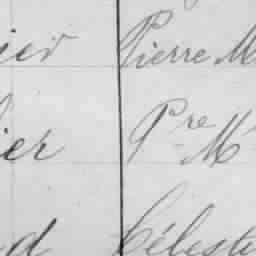 ier Pierre M
ier Pre M
d Célest